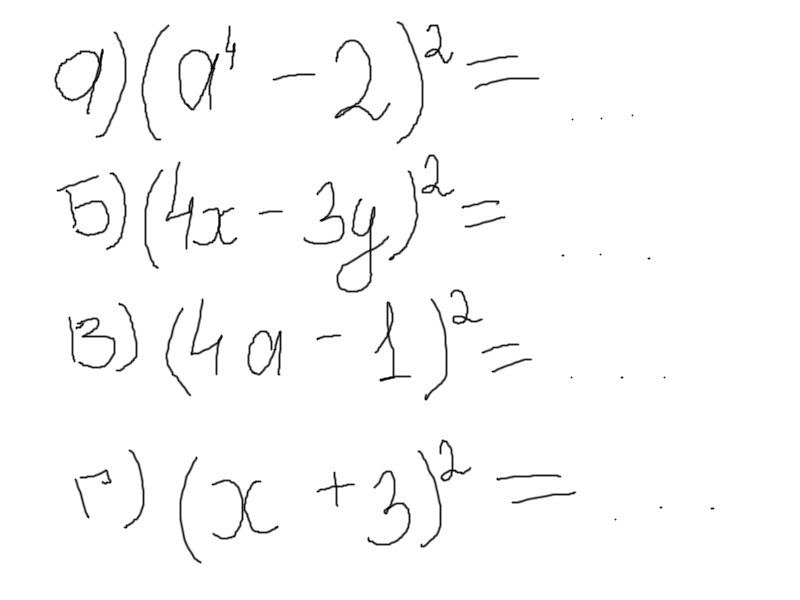 а) (a⁴ - 2)² = ...
Б) (4x - 3y)² = ...
В) (4a - 1)² = ...
Г) (x + 3)² = ...